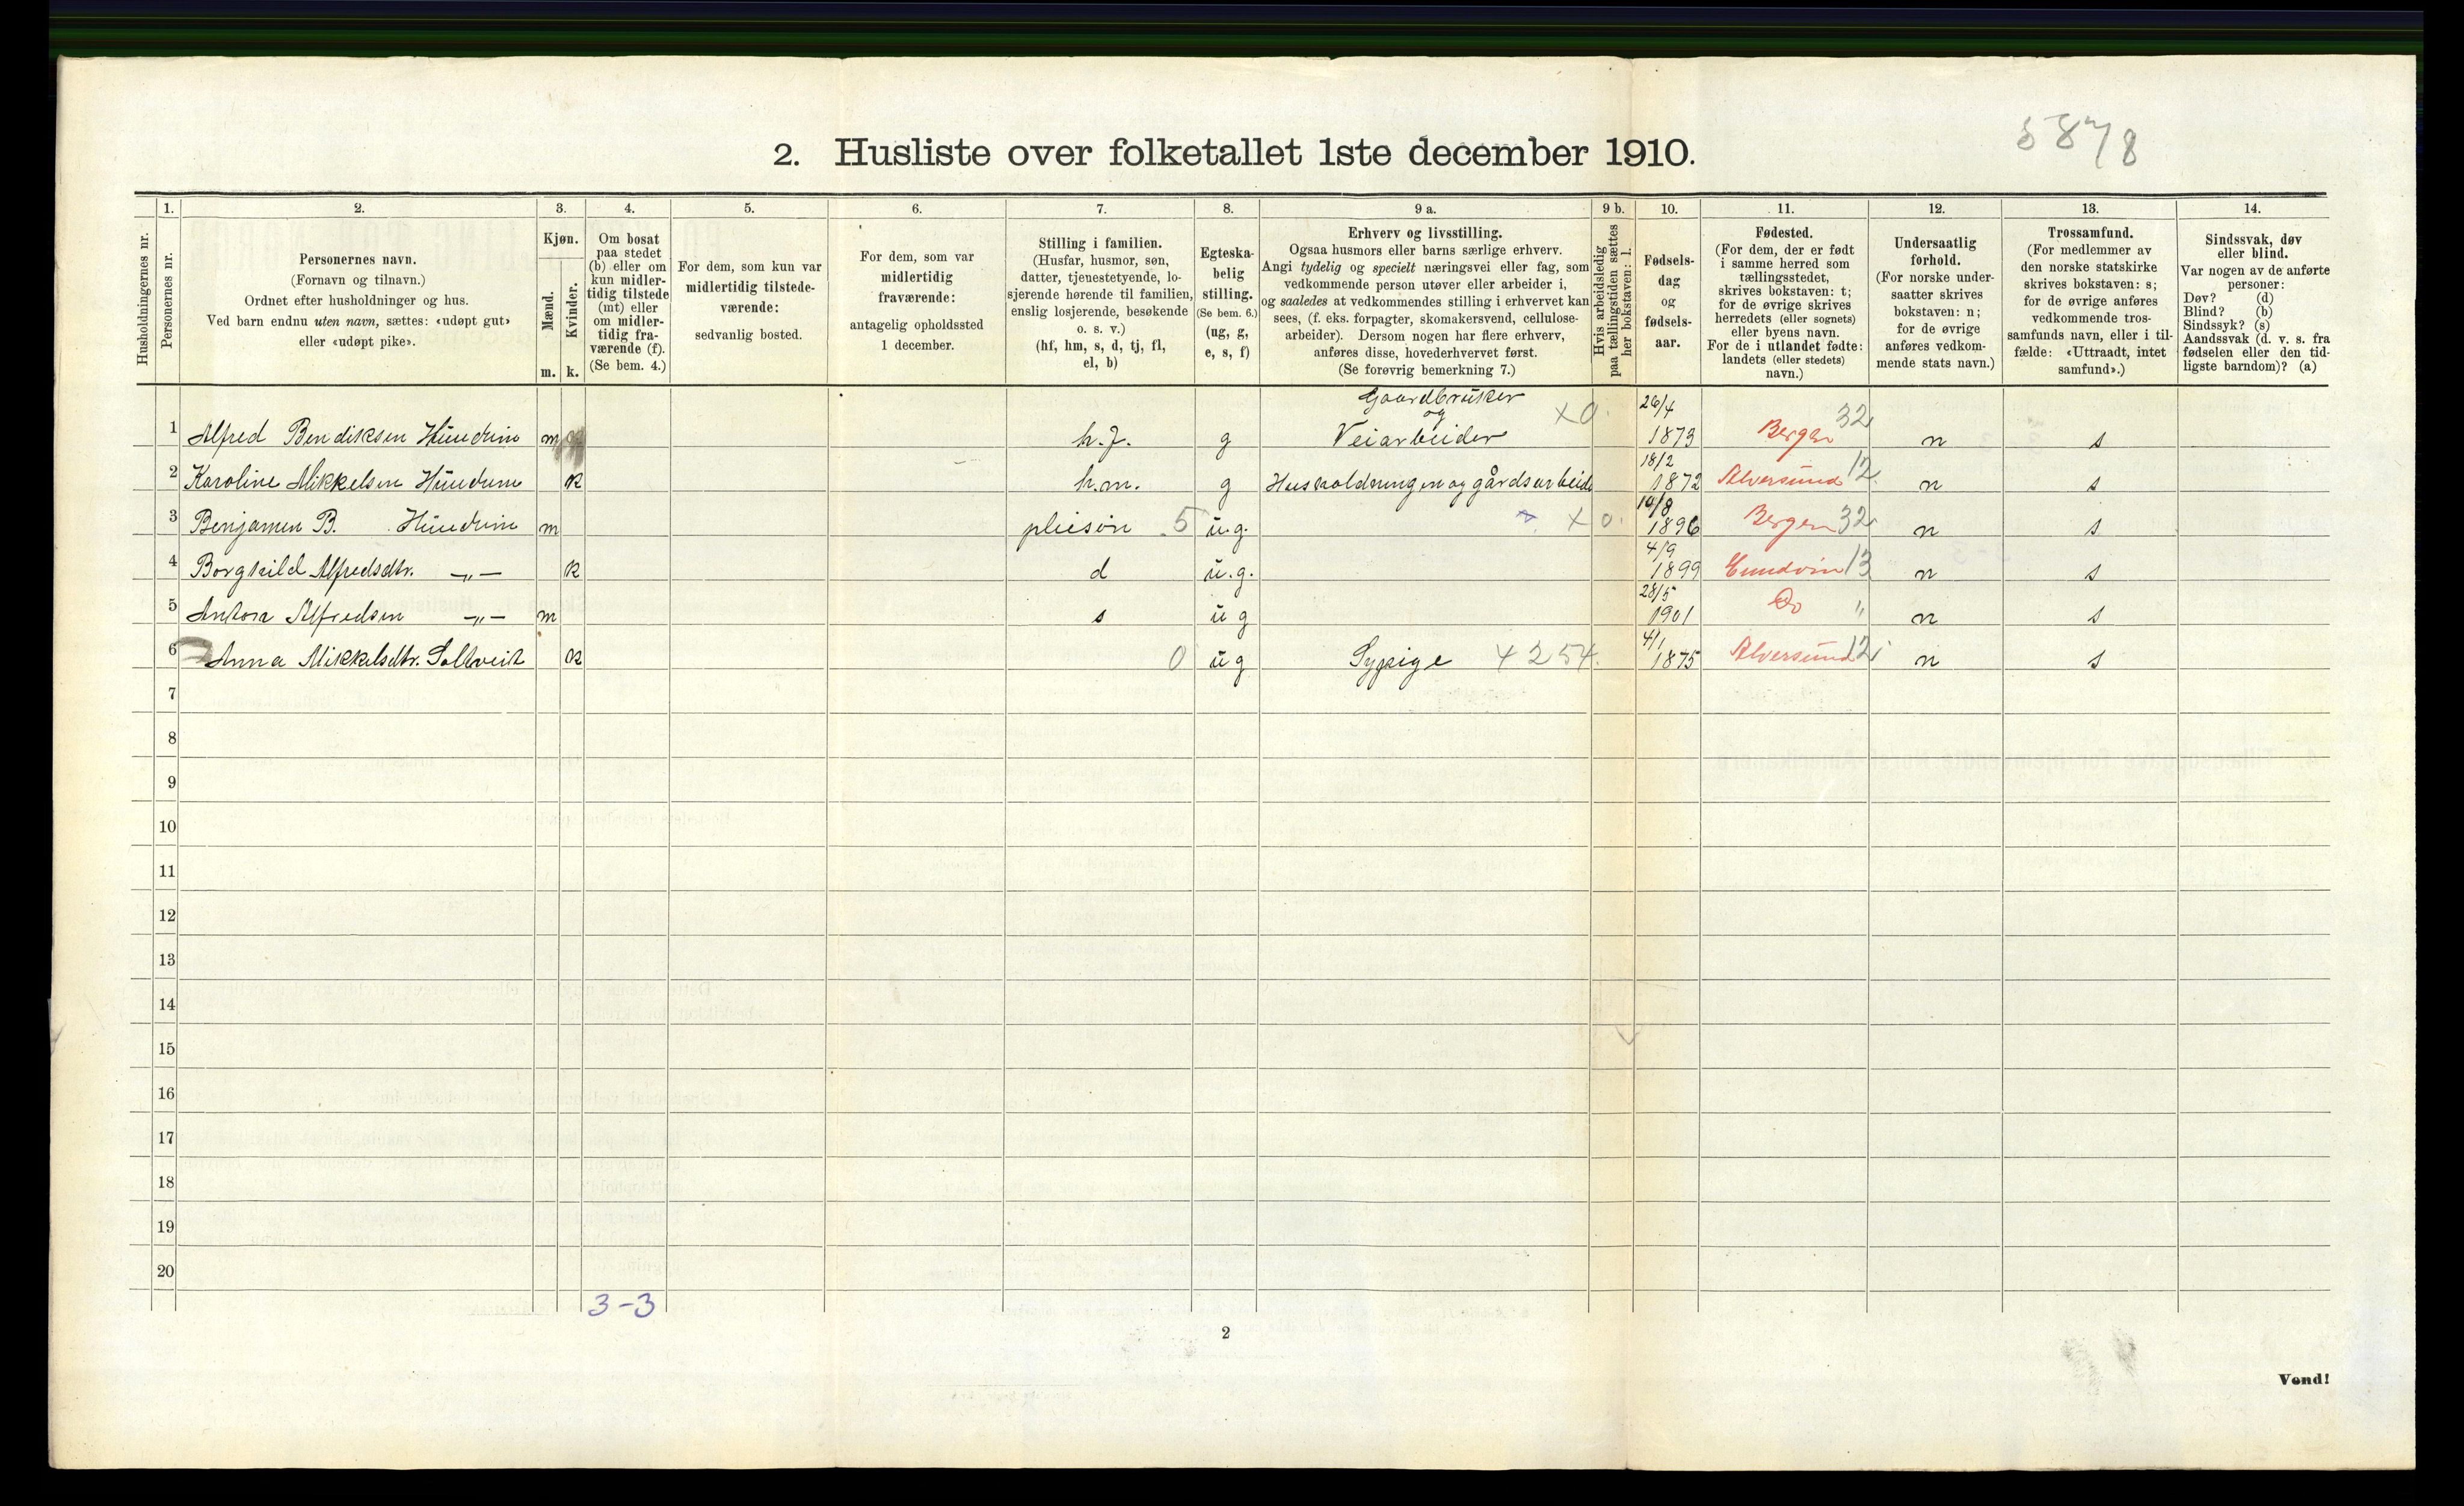 5878
2. Husliste over folketallet 1ste december 1910.
Husholdningernes nr.
1.
Personernes nr.
2.
Personernes navn.
(Fornavn og tilnavn.)
Ordnet efter husholdninger og hus.
Ved barn endnu uten navn, sættes: «udøpt gut»
eller «udøpt pike».
3.
Kjøn.
Mænd.
Kvinder.
m. k.
4.
Om bosat
paa stedet
(b) eller om
kun midler-
tidig tilstede
(mt) eller
om midler-
tidig fra-
værende (f).
(Se bem. 4.)
5.
For dem, som kun var
midlertidig tilstede-
værende:
sedvanlig bosted.
6.
For dem, som var
midlertidig
fraværende:
antagelig opholdssted
1 december.
7.
Stilling i familien.
(Husfar, husmor, søn,
datter, tjenestetyende, lo-
sjerende hørende til familien,
enslig losjerende, besøkende
o. s. v.)
(hf, hm, s, d, tj, fl,
el, b)
8.
Egteska-
belig
stilling.
(Se bem. 6.)
(ug, g,
e, s, f)
9 a.
Erhverv og livsstilling.
Ogsaa husmors eller barns særlige erhverv.
Angi tydelig og specielt næringsvei eller fag, som
vedkommende person utøver eller arbeider i,
og saaledes at vedkommendes stilling i erhvervet kan
sees, (f. eks. forpagter, skomakersvend, cellulose-
arbeider). Dersom nogen har flere erhverv,
anføres disse, hovederhvervet først.
(Se forøvrig bemerkning 7.)
9 b.
Hvis arbeidsledig
paa tællingstiden sættes
her bokstaven: l.
10.
Fødsels-
dag
og
fødsels-
aar.
11.
Fødested.
(For dem, der er født
i samme herred som
tællingstedet,
skrives bokstaven: t;
for de øvrige skrives
herredets (eller sognets)
eller byens navn.
For de i utlandet fødte:
landets (eller stedets)
navn.)
12.
Undersaatlig
forhold.
(For norske under-
saatter skrives
bokstaven: n;
for de øvrige
anføres vedkom-
mende stats navn.)
13.
Trossamfund.
(For medlemmer av
den norske statskirke
skrives bokstaven: s;
for de øvrige anføres
vedkommende tros-
samfunds navn, eller i til-
fælde: «Uttraadt, intet
samfund».)
14.
Sindssvak, døv
eller blind.
Var nogen av de anførte
personer:
Døv? (d)
Blind? (b)
Sindssyk? (s)
Aandssvak (d. v. s. fra
fødselen eller den tid-
ligste barndom)? (a)
Gaardbruker
og
1 Alfred Bendiksen m h.f. g Veiarbeider x0. 26/4 1873 Bergen 32 n s
2 Karoline Mikkelsen k h.m. g Husholdningen og gårdsarbeide 18/2 1872 Alversund 12 n s
3 Benjamen B. m pleiesön 5 u.g. x 0. 10/8 1896 Bergen 32 n s
4 Borghild Alfredsdtr. -„- k d u.g. 4/9 1899 13 n s
5 Anton Alfredsen -„- m s u g 28/5 1901 Do " n s
6 Anna Mikkelsdtr. Soltveit k 0 u g Sypige 4254. 4/1 1875 Alversund 12 n s
7
8
9
10
11
12
13
14
15
16
17
18
19
20
3-3
2
Vend!